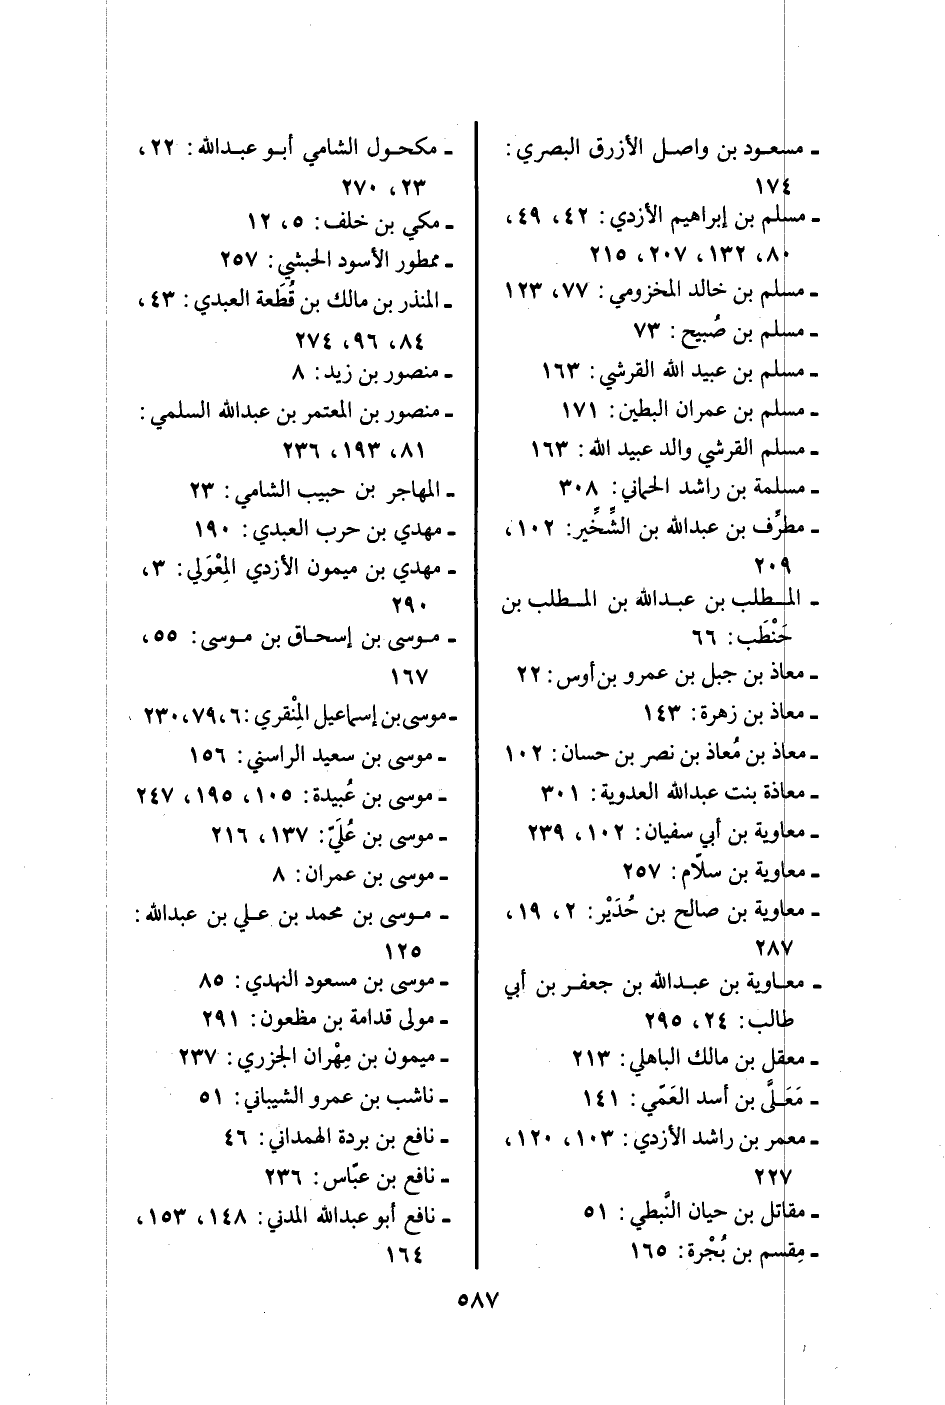 ـ مسعود بن واصل الأزرق البصري:
١٧٤
ـ مسلم بن إبراهيم الأزدي: ٤٢، ٤٩،
٨٠، ١٣٢، ٢٠٧، ٢١٥
ـ مسلم بن خالد المخزومي: ٧٧، ١٢٣
ـ مسلم بن صُبيح: ٧٣
ـ مسلم بن عبيد الله القرشي: ١٦٣
ـ مسلم بن عمران البطين: ١٧١
ـ مسلم القرشي والد عبيد الله: ١٦٣
ـ مسلمة بن راشد الحماني: ٣٠٨
ـ مطرِّف بن عبدالله بن الشِّخِّير: ١٠٢،
٢٠٩
ـ المطلب بن عبدالله بن المطلب بن
حَنْطَب: ٦٦
ـ معاذ بن جبل بن عمرو بن أوس: ٢٢
ـ معاذ بن زهرة: ١٤٣
ـ معاذ بن مُعاذ بن نصر بن حسان: ١٠٢
ـ معاذة بنت عبدالله العدوية: ٣٠١
ـ معاوية بن أبي سفيان: ١٠٢، ٢٣٩
ـ معاوية بن سلّام: ٢٥٧
ـ معاوية بن صالح بن حُدَيْر: ٢، ١٩،
٢٨٧
ـ معاوية بن عبدالله بن جعفر بن أبي
طالب: ٢٤، ٢٩٥
ـ معقل بن مالك الباهلي: ٢١٣
ـ مَعَلَّى بن أسد العَمّي: ١٤١
ـ معمر بن راشد الأزدي: ١٠٣، ١٢٠،
٢٢٧
ـ مقاتل بن حيان النَّبطي: ٥١
ـ مِقسم بن بُجْرة: ١٦٥
ـ مكحول الشامي أبو عبدالله: ٢٢،
٢٣، ٢٧٠
ـ مكي بن خلف: ٥، ١٢
ـ ممطور الأسود الحبشي: ٢٥٧
ـ المنذر بن مالك بن قُطَعة العبدي: ٤٣،
٨٤، ٩٦، ٢٧٤
ـ منصور بن زيد: ٨
ـ منصور بن المعتمر بن عبدالله السلمي:
٨١، ١٩٣، ٢٣٦
ـ المهاجر بن حبيب الشامي: ٢٣
ـ مهدي بن حرب العبدي: ١٩٠
ـ مهدي بن ميمون الأزدي المِعْوَلي: ٣،
٢٩٠
ـ موسى بن إسحاق بن موسى: ٥٥،
١٦٧
ـ موسى بن إسماعيل المِنْقري: ٦، ٧٩، ٢٣٠
ـ موسى بن سعيد الراسني: ١٥٦
ـ موسى بن عُبيدة: ١٠٥، ١٩٥، ٢٤٧
ـ موسى بن عُلَيّ: ١٣٧، ٢١٦
ـ موسى بن عمران: ٨
ـ موسى بن محمد بن علي بن عبدالله:
١٢٥
ـ موسى بن مسعود النهدي: ٨٥
ـ مولى قدامة بن مظعون: ٢٩١
ـ ميمون بن مِهْران الجزري: ٢٣٧
ـ ناشب بن عمرو الشيباني: ٥١
ـ نافع بن بردة الهمداني: ٤٦
ـ نافع بن عبّاس: ٢٣٦
ـ نافع أبو عبدالله المدني: ١٤٨، ١٥٣،
١٦٤
٥٨٧